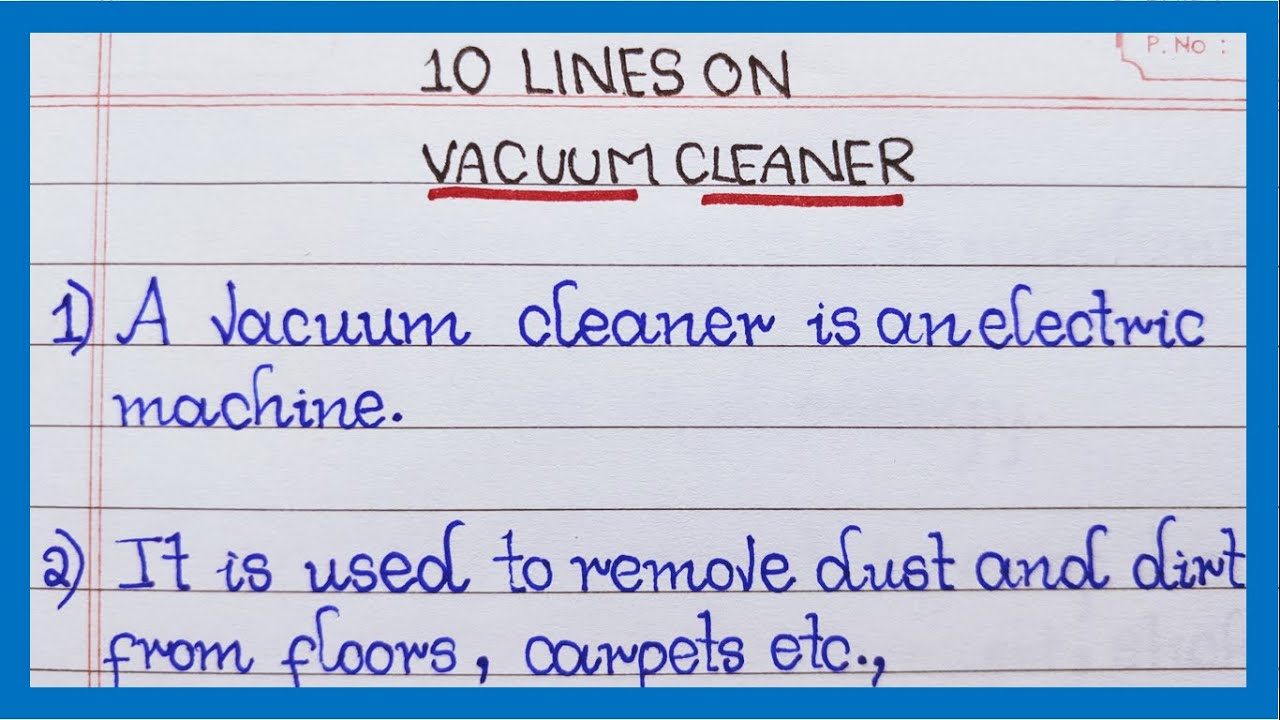 P. No :
10 LINES ON
VACUUM CLEANER
1) A vacuum cleaner is an electric
machine.
2) It is used to remove dust and dirt
from floors, carpets etc.,